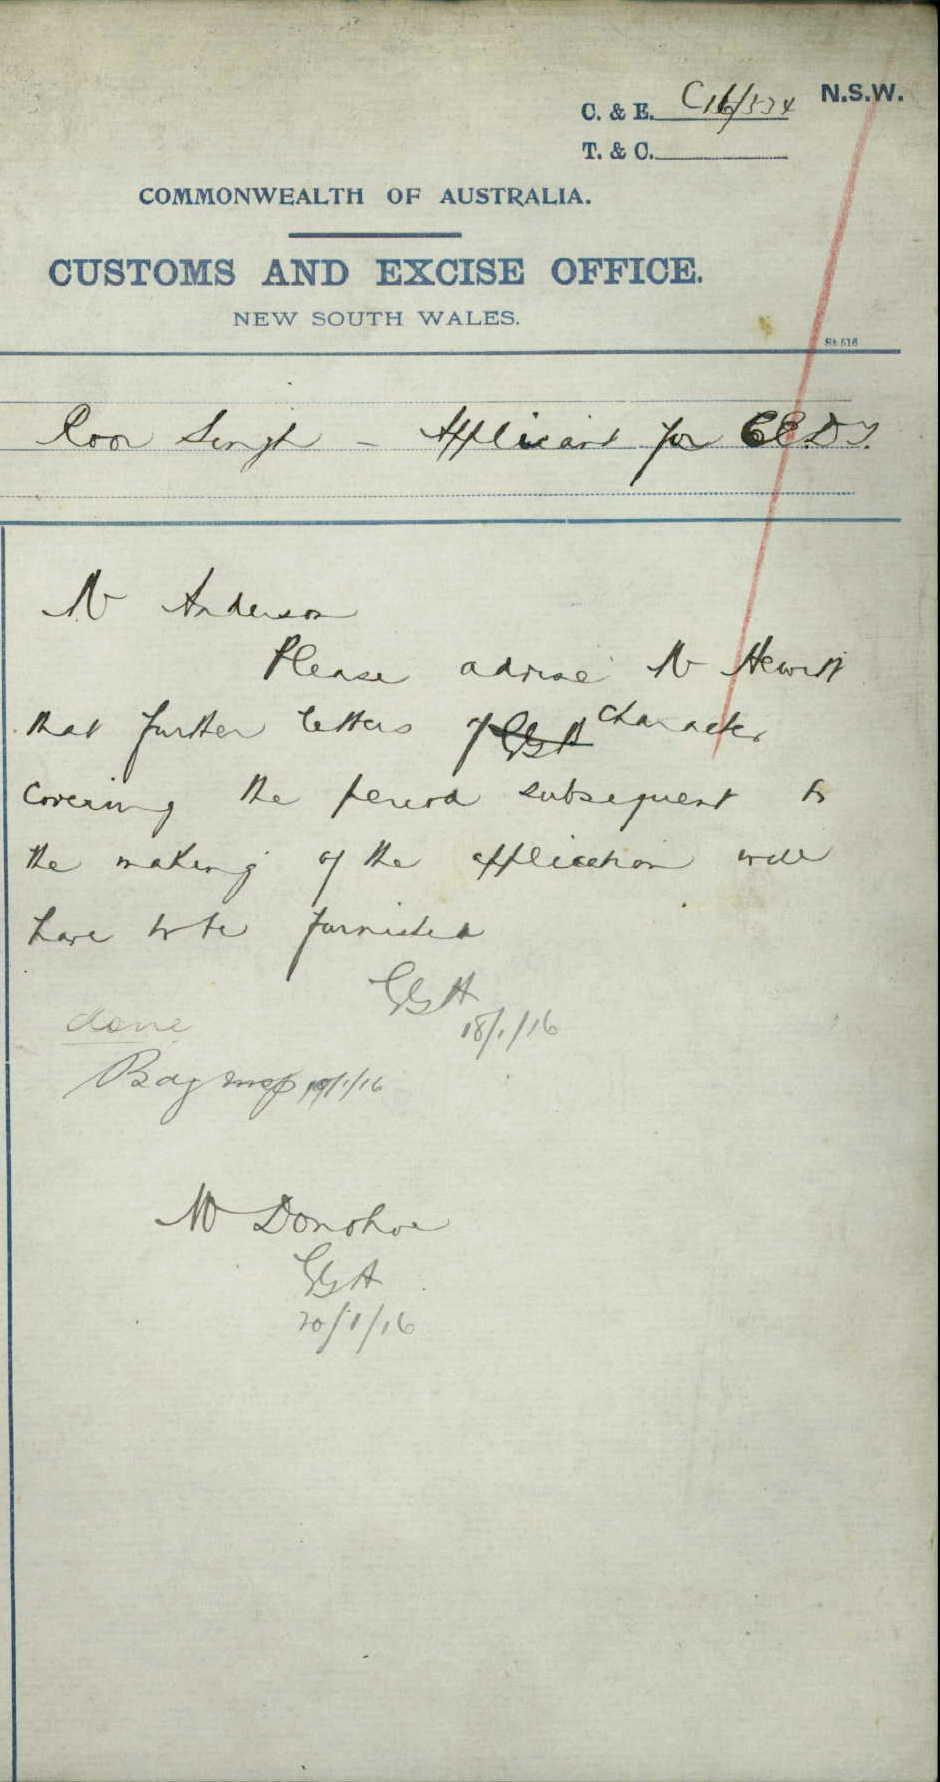 N.S.W.
C. & E. C16/534
T. & C.
COMMONWEALTH OF AUSTRALIA.
CUSTOMS AND EXCISE OFFICE.
NEW SOUTH WALES.
St. 516
Roor Singh - Applicant for C.E.D.T.
Mr Anderson
Please advise Mr Hewitt
that further letters of GGH character
covering the period subsequent to
the making of the application will
have to be furnished
GGH
18/1/16
done
19/1/16
Mr Donohoe
GGH
20/1/16